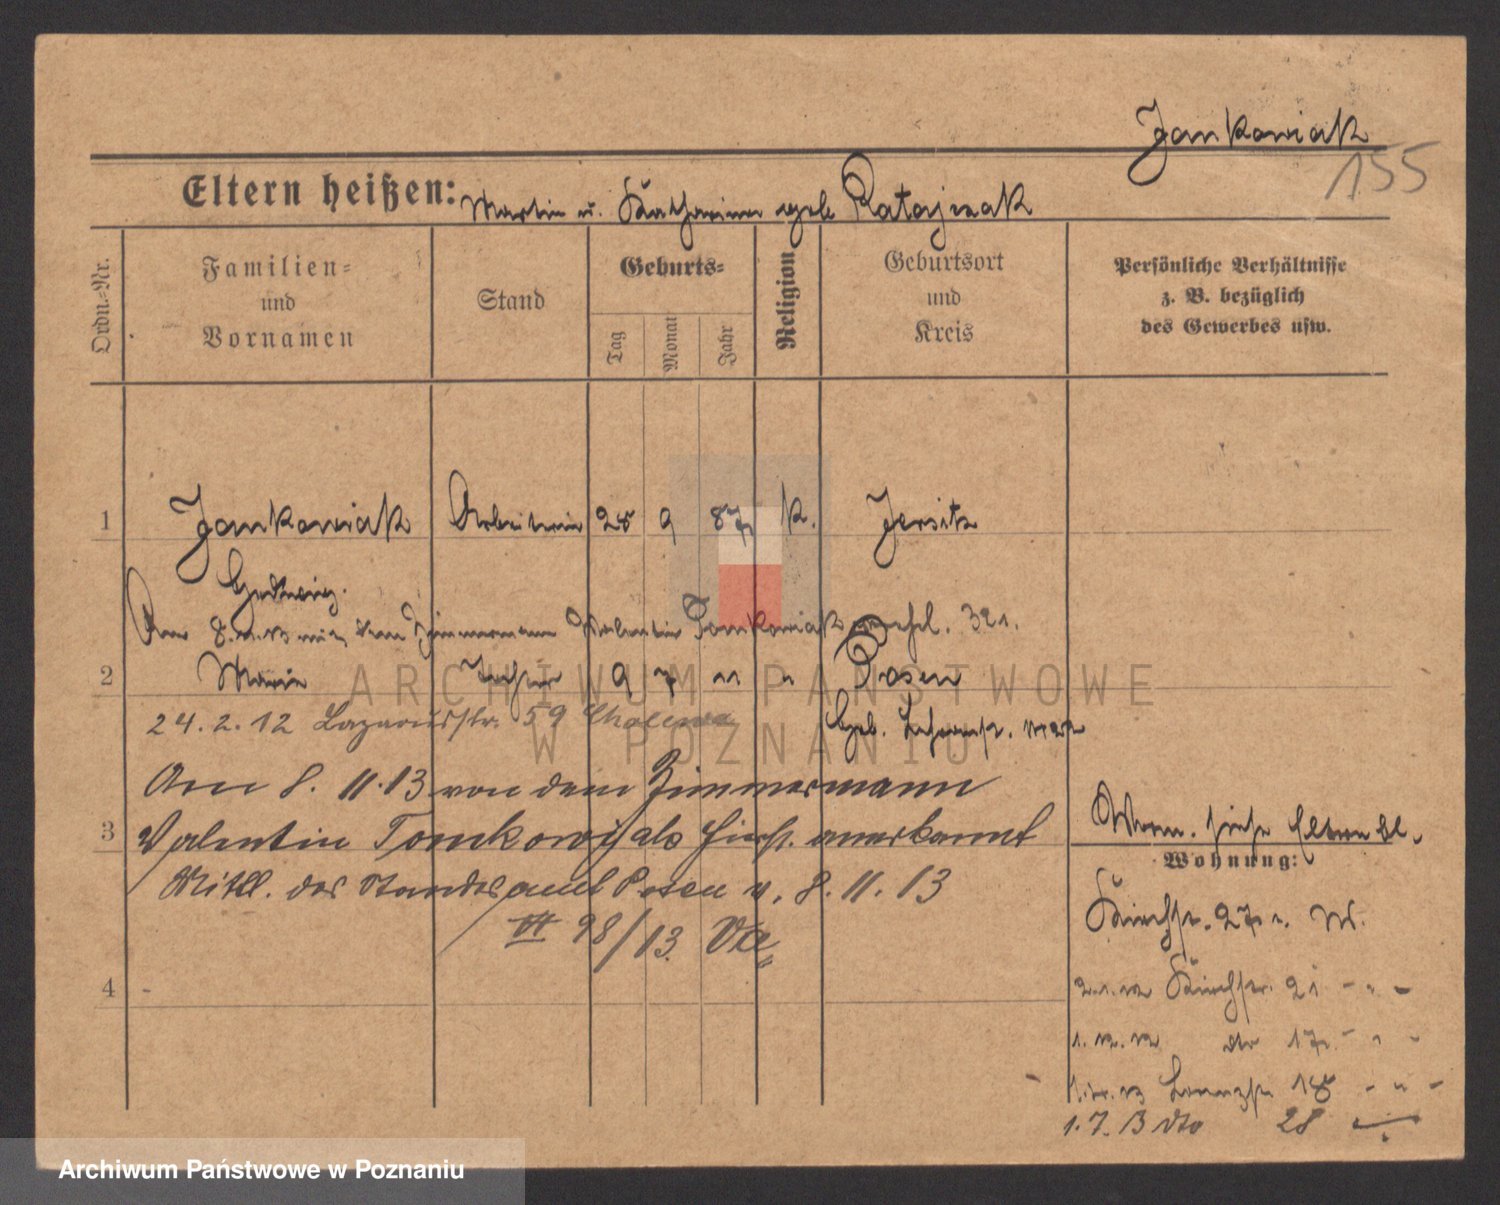 Jankowiak
155
Eltern heißen: Martin u. Katharina geb Ratajczak
Ordn.=Nr.
Familien=
und
Vornamen
Stand
Geburts=
Tag
Monat
Jahr
Religion
Geburtsort
und
Kreis
Persönliche Verhältnisse
z. B. bezüglich
des Gewerbes usw.
1 Jankowiak Arbeiterin 28 9 87 k. Jersitz
Hedwig.
Am 8.11.13 mit dem Zimmermann Valentin Tomkowiak verehel. 321.
2 Maria Tochter 9 7 11 " Posen
24.2.12 Lazarusstr. 59
Geb.
Am 8. 11. 13 von dem Zimmermann
3 Valentin Tomkowiak als anerkannt
Mittl. des Standesamt Posen v. 8. 11. 13
VI 98/13
4 -
Vorm. siehe Eltern bl.
Wohnung:
Kirchstr. 27
Kirchstr. 21 - " -
1. 12. 12 dto 17 - " -
18 - " -
1. 7. 13 dto 28
ARCHIWUM PAŃSTWOWE
W POZNANIU
Archiwum Państwowe w Poznaniu